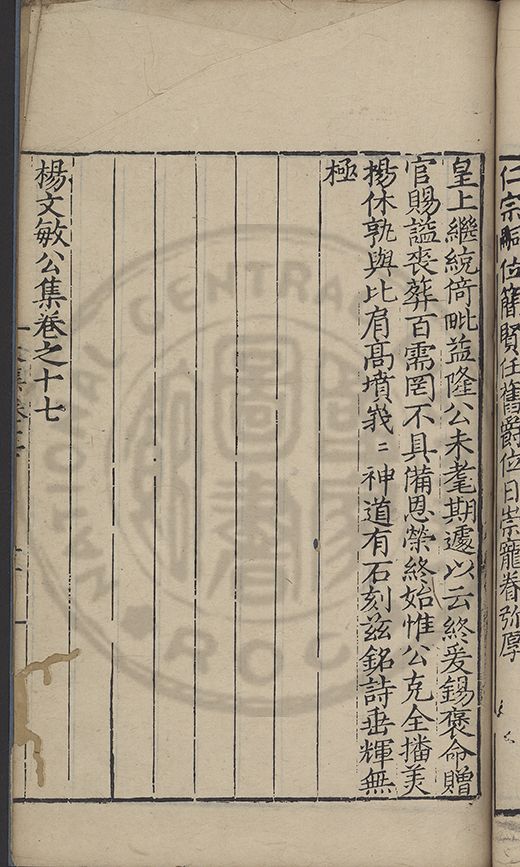 仁宗嗣位簡賢任舊爵位日崇寵眷弥厚
皇上繼統倚毗益隆公未耄期遽以云終爰錫褒命贈
官賜謚喪葬百需罔不具備恩榮終始惟公克全播美
揚休孰與比肩高墳峩〻神道有石刻兹銘詩垂輝無
極
楊文敏公集卷之十七